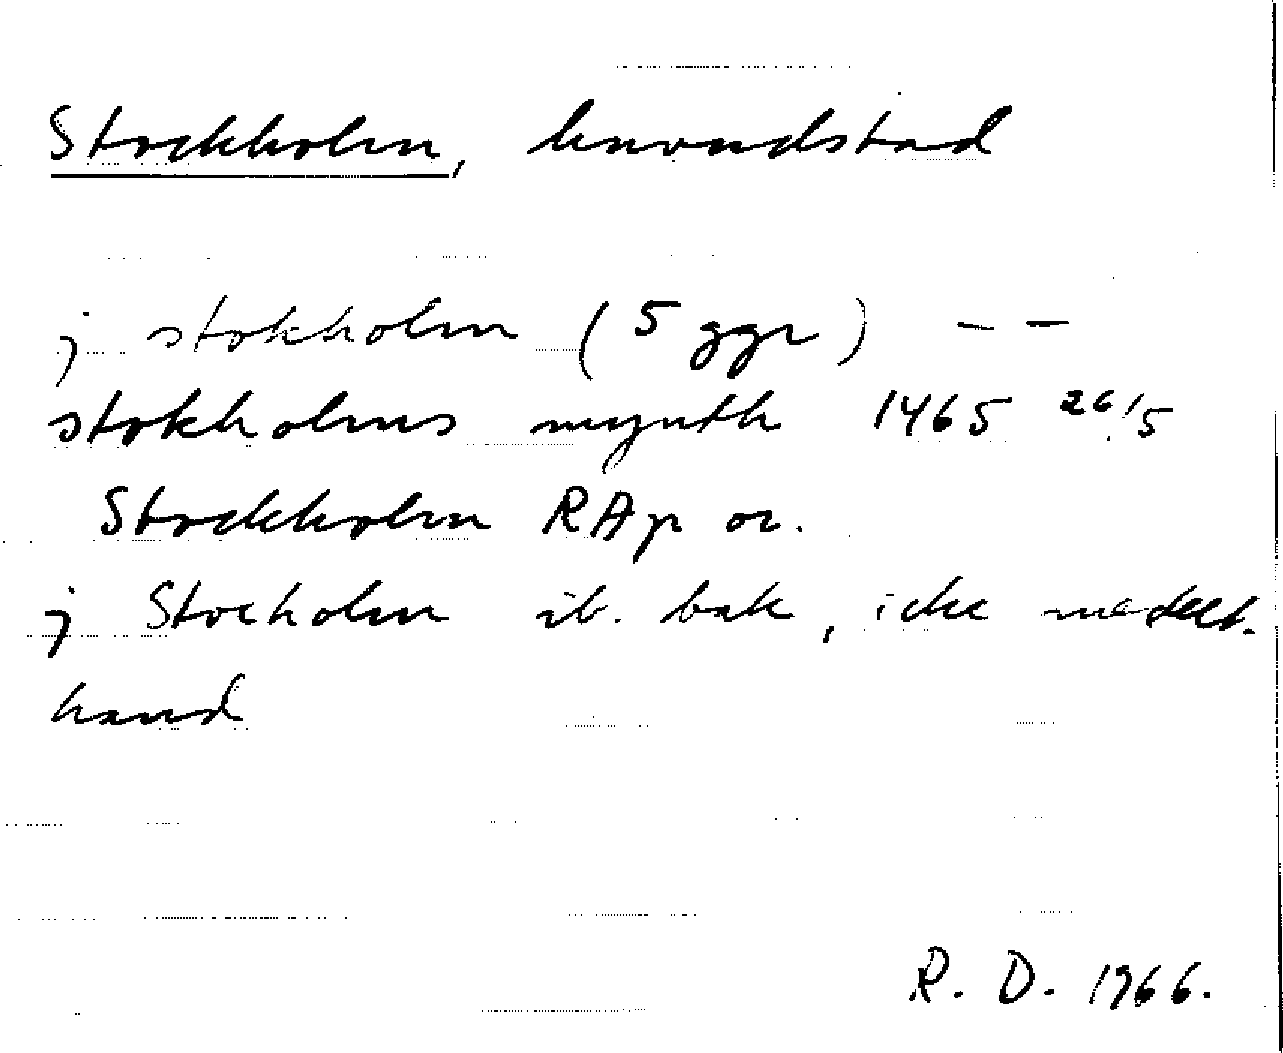 Stockholm, huvudstad
j stokholm (5 ggr) — —
stokholms mynth 1465 26/5
Stockholm RAp or.
j Stocholm ib. bak, icke medelt.
hand
R. D. 1966.